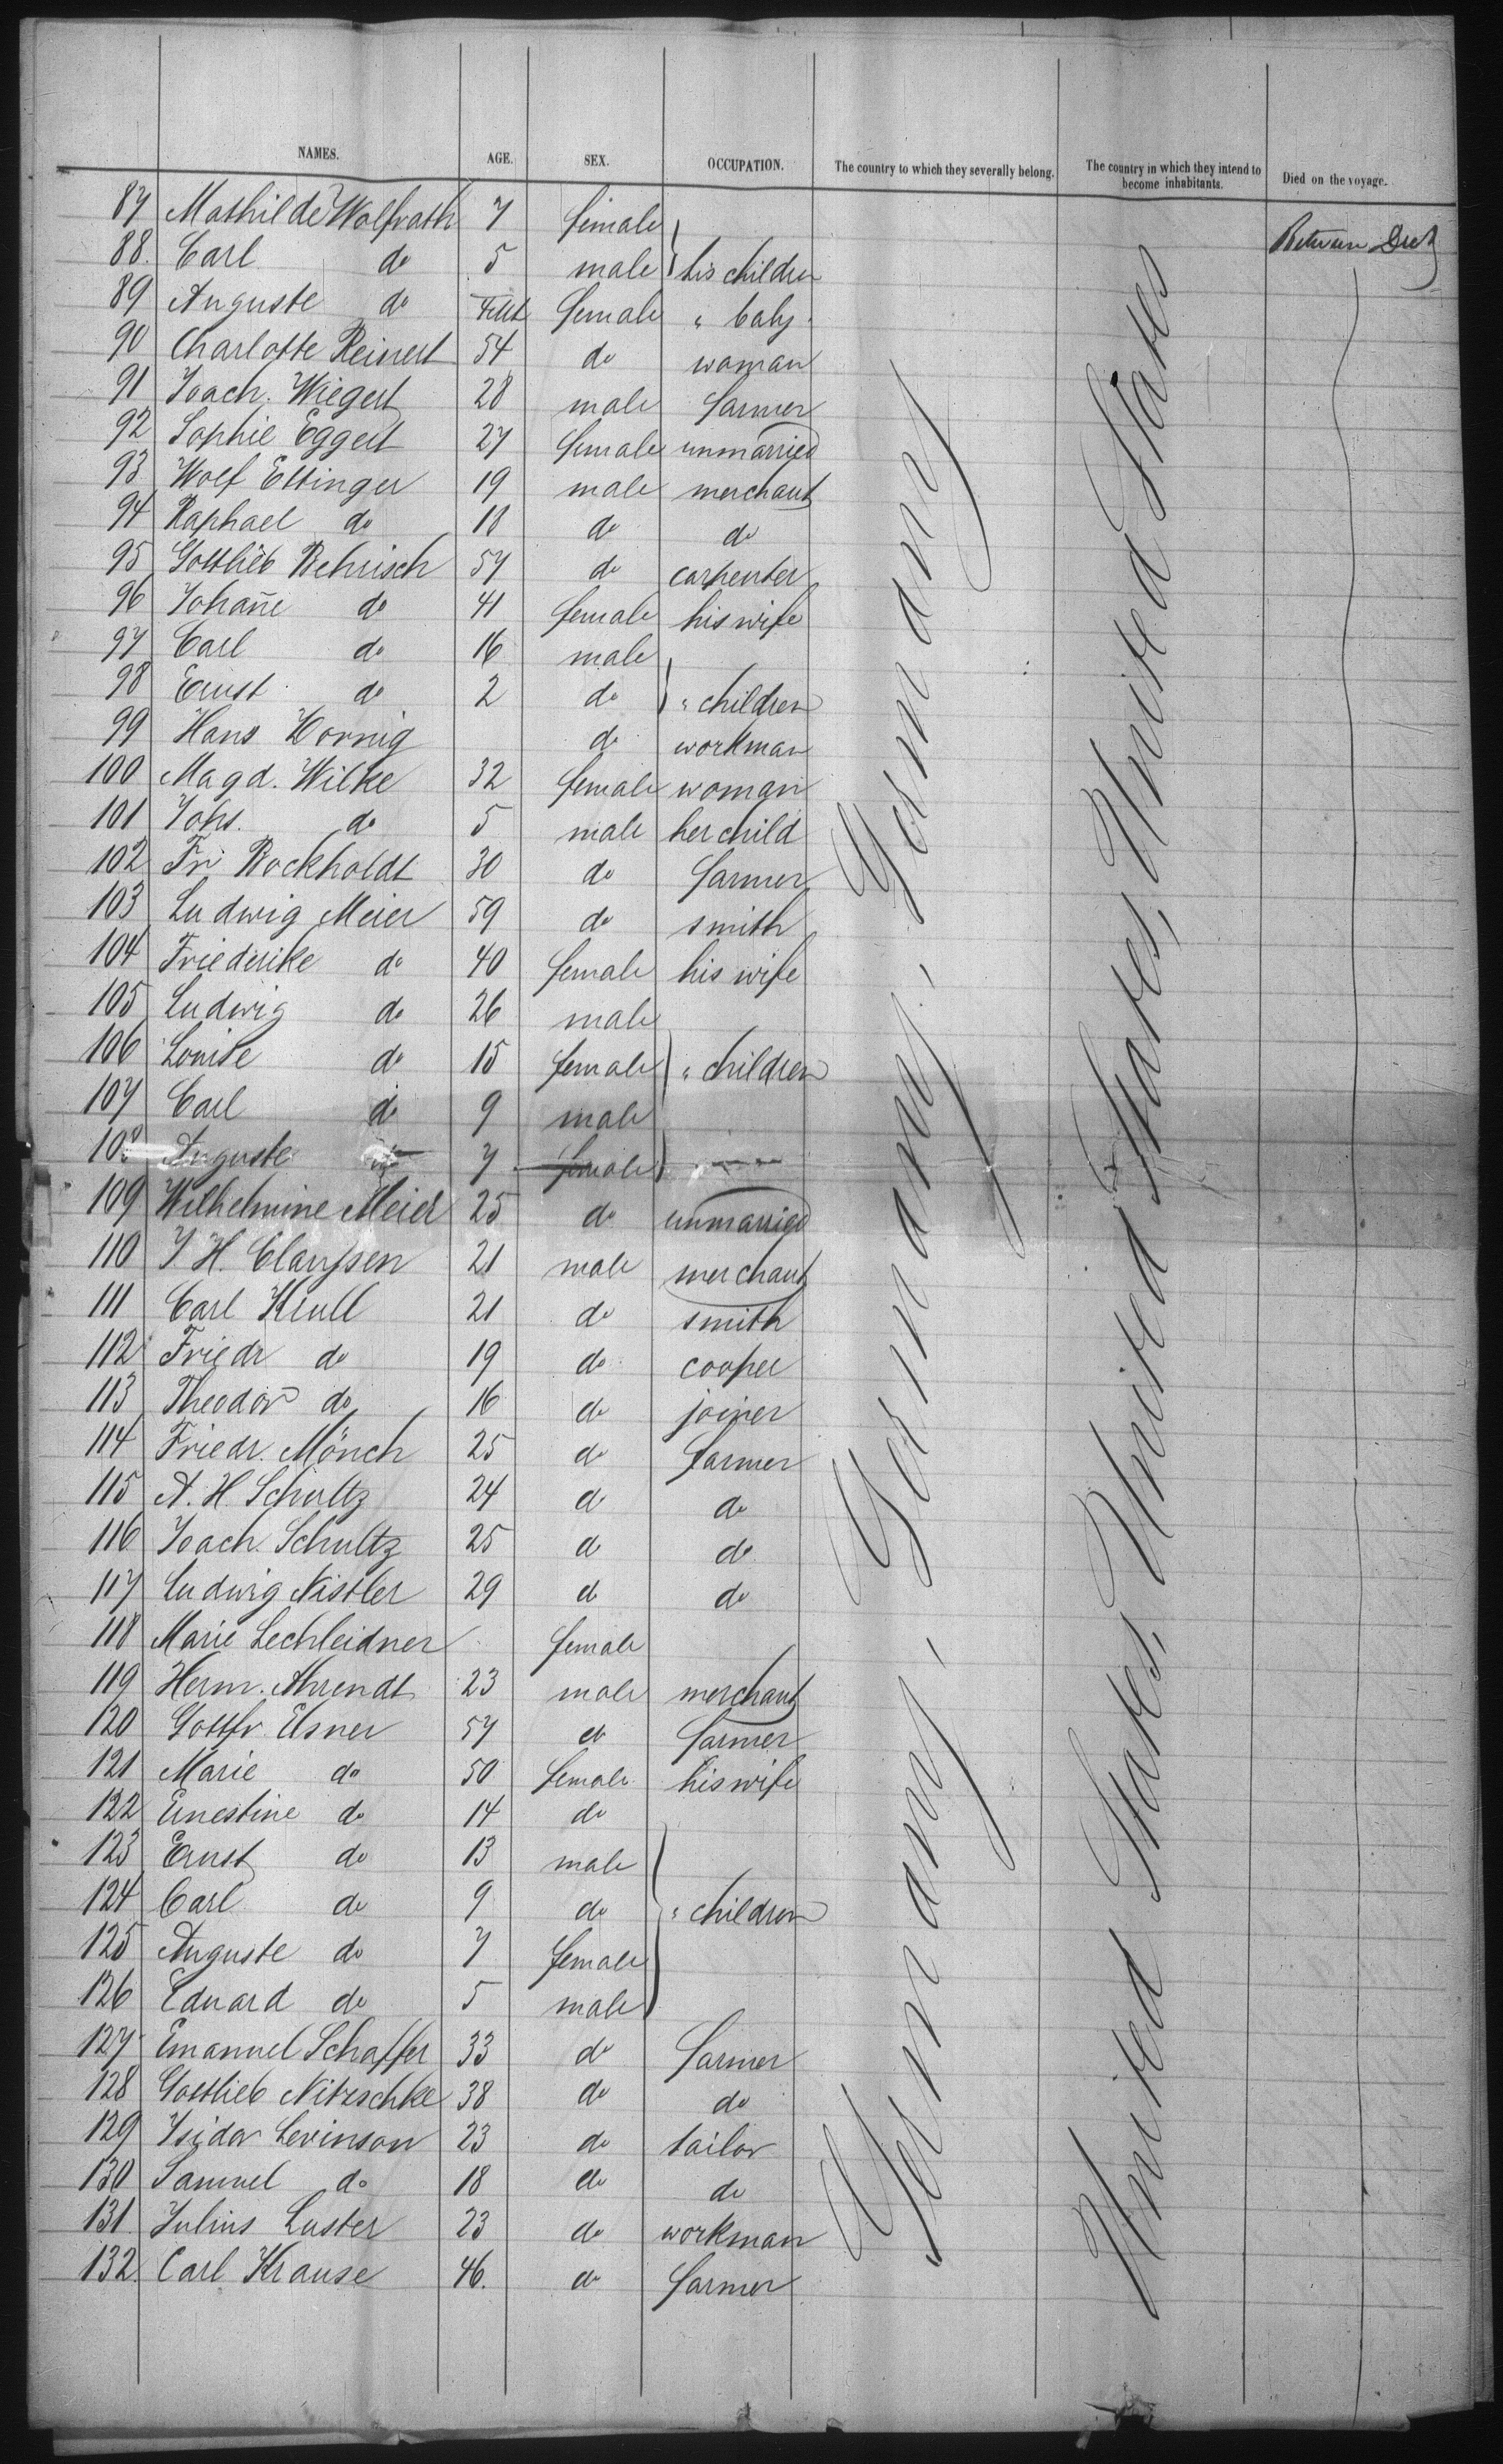 NAMES. AGE. SEX. OCCUPATION. The country to which they severally belong. The country in which they intend to become inhabitants. Died on the voyage.
87 Mathilde Wolfrath 7 female
Between Deck
88. Carl do 5 male his children
89 Auguste do female " baby
90 Charlotte Reinert 54 do woman
91 Joach. Wiegert 28 male farmer
92 Sophie Eggert 27 female unmarried
93 Wolf Ettinger 19 male merchant
94 Raphael do 18 do do
95 Gottlieb Behrisch 57 do carpenter
96 Johañe do 41 female his wife
97 Carl do 16 male
98 Ernst do 2 do " children
99 Hans Hornig do workman
100 Magd. Wilke 32 female woman
101 Johs. do 5 male her child
102 Fri Bockholdt 30 do farmer
103 Ludwig Meier 59 do smith
104 Friederike do 40 female his wife
105 Ludwig do 26 male
106 Louise do 15 female " children
107 Carl do 9 male
108 Auguste do 7 female
109 Wilhelmine Meier 25 do unmarried
110 J H. Claussen 21 male merchant
111 Carl Krull 21 do smith
112 Friedr do 19 do cooper
113 Theodor do 16 do joiner
114 Friedr. Mönch 25 do farmer
115 A. H. Schultz 24 do do
116 Joach. Schultz 25 do do
117 Ludwig Nistler 29 do do
118 Marie Lechleidner female
119 Herm. Ahrendt 23 male merchant
120 Gottfr. Elsner 57 do farmer
121 Marie do 50 female his wife
122 Ernestine do 14 do
123 Ernst do 13 male
124 Carl do 9 do " children
125 Auguste do 7 female
126 Eduard do 5 male
127 Emanuel Schaffer 33 do farmer
128 Gottlieb Nitzschke 38 do do
129 Isidor Levinson 23 do tailor
130 Samuel do 18 do do
131. Julius Luster 23 do workman
132. Carl Krause 46. do farmer
Germany - Germany - Germany
United States, United States, United States